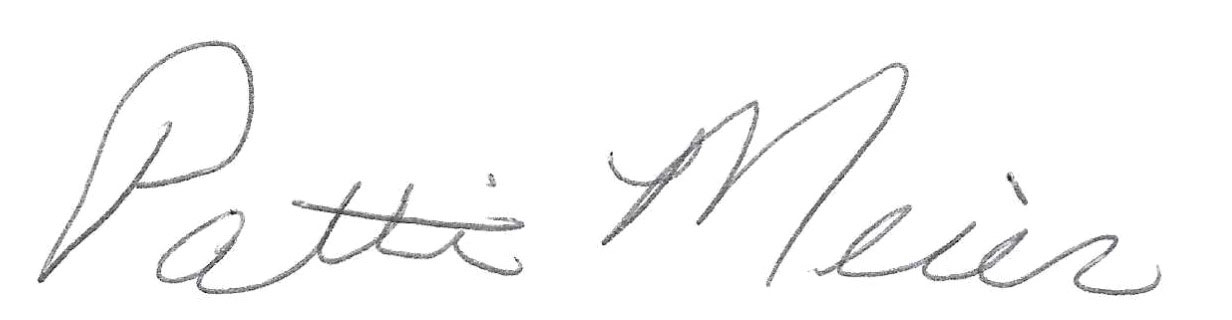 Patti Meier